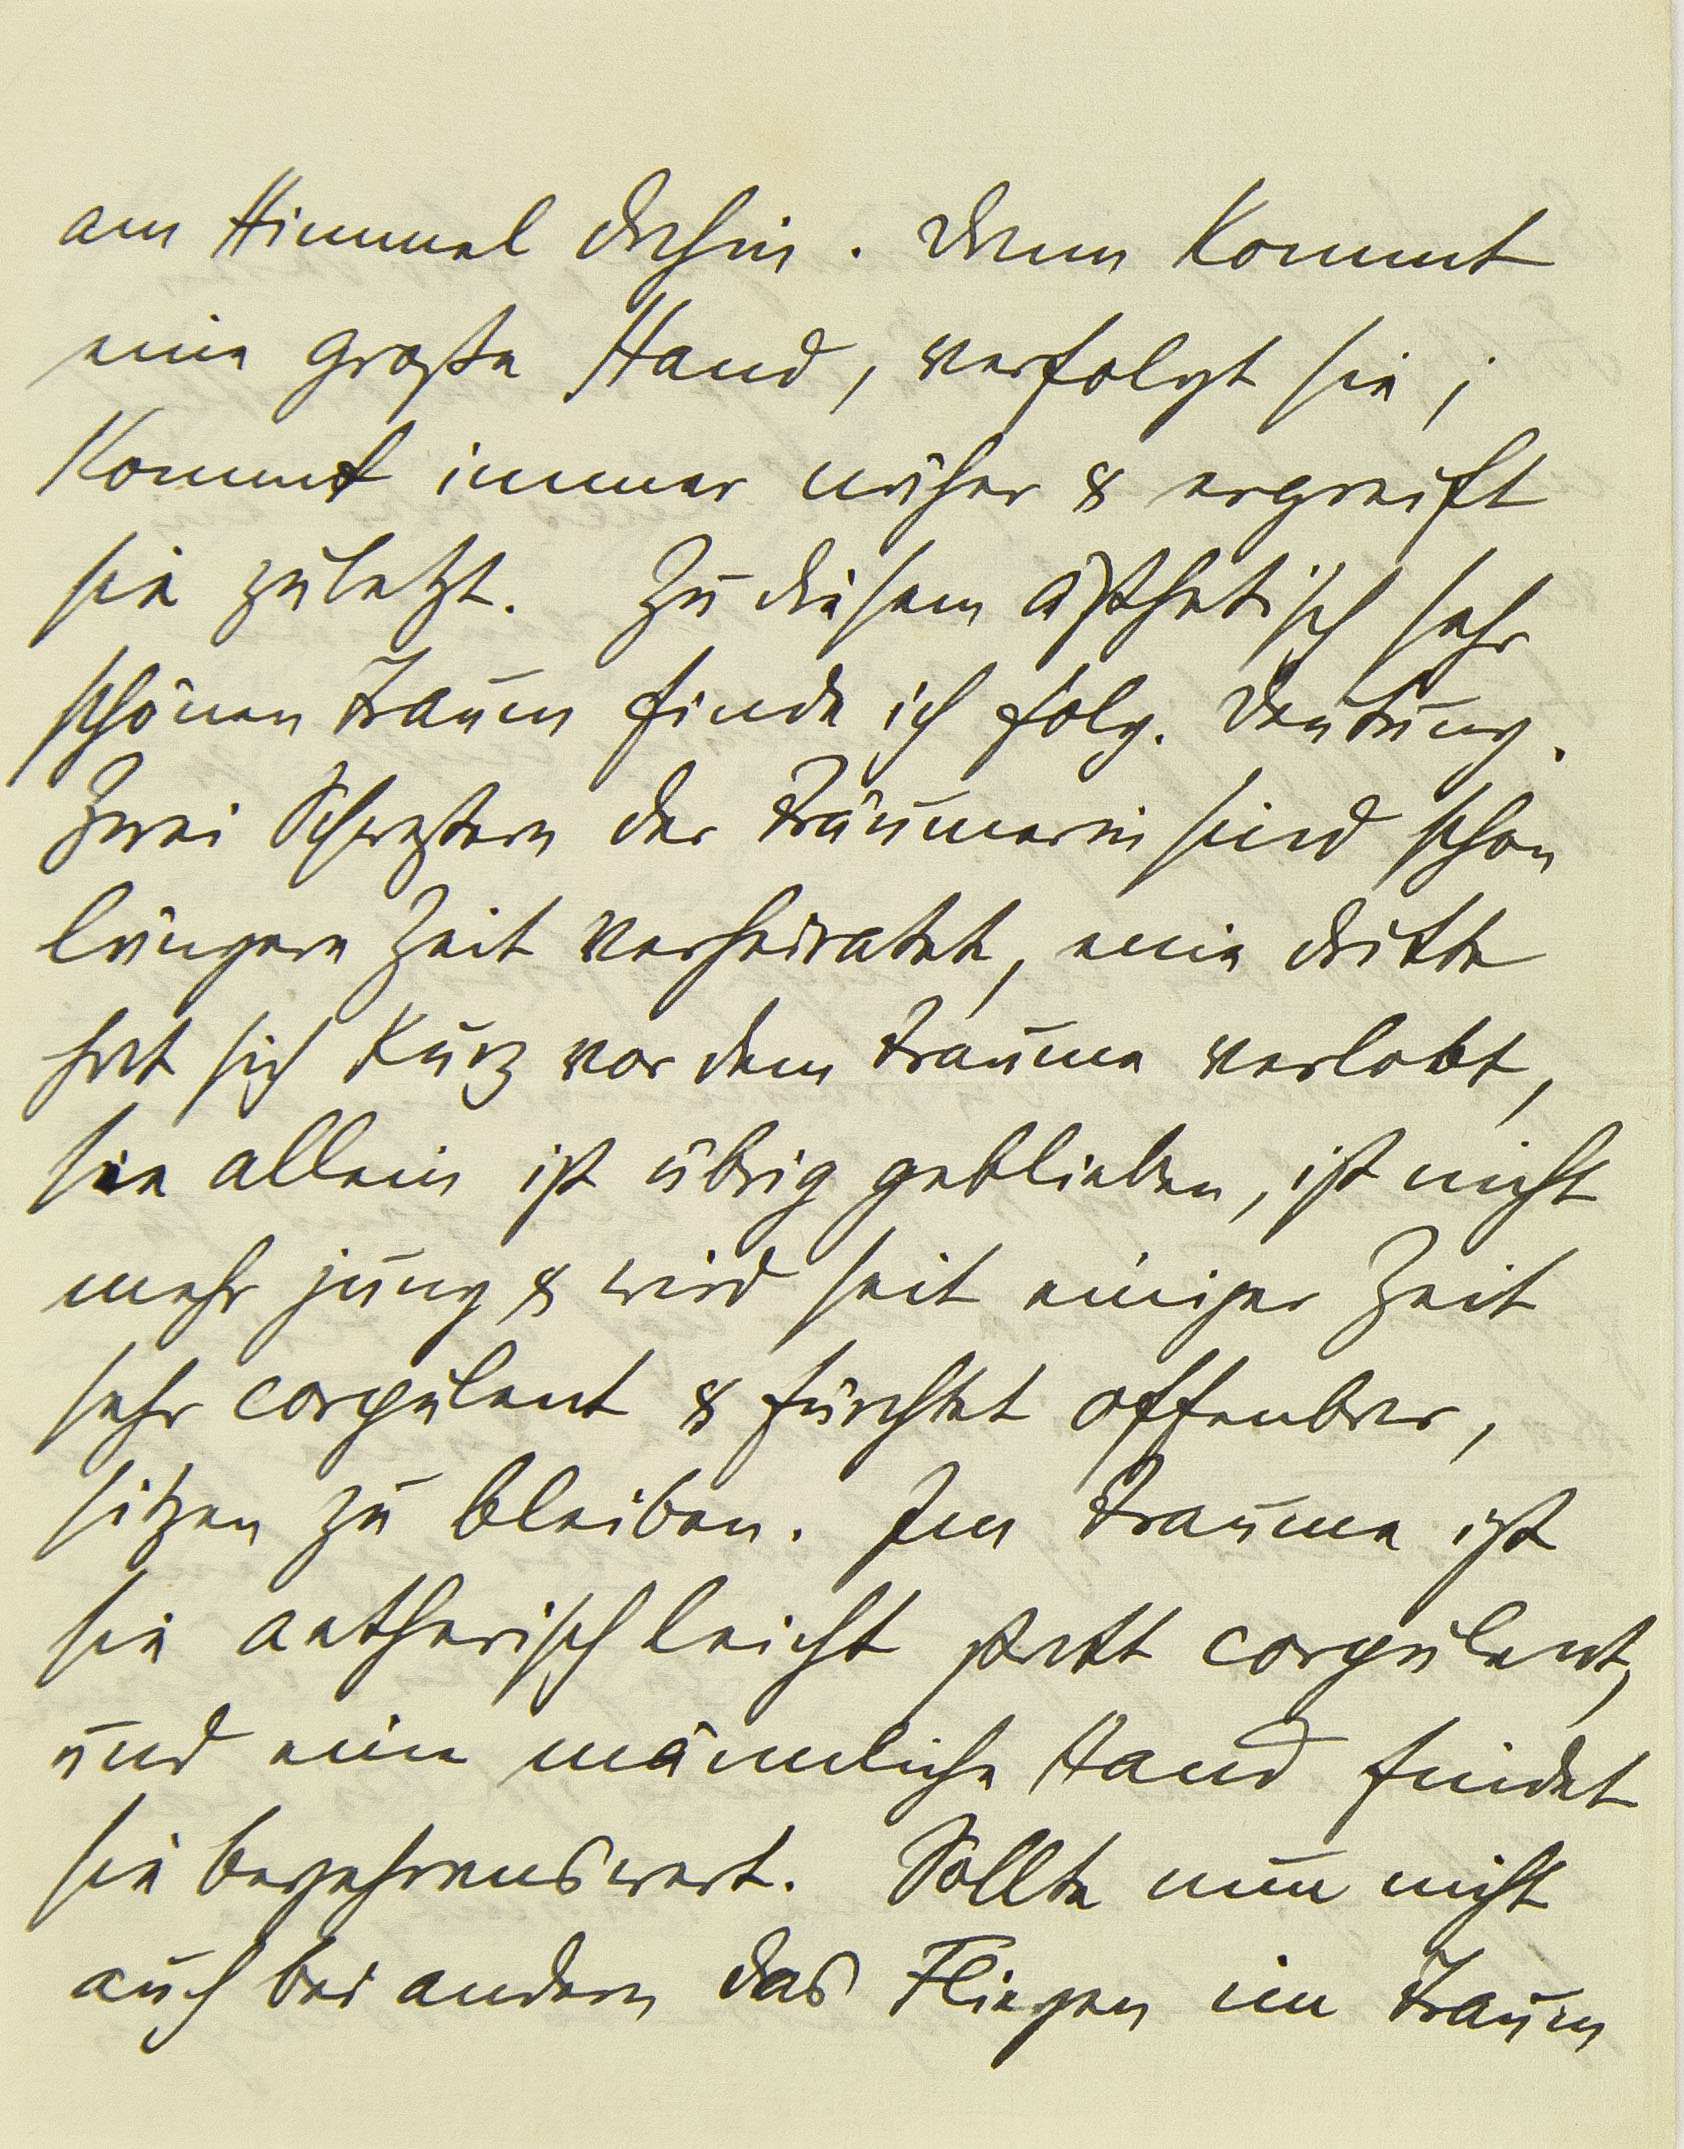 am Himmel dahin. Dann kommt
eine große Hand, verfolgt sie;
kommt immer näher & ergreift
sie zuletzt. Zu diesem ästhetisch sehr
schönen Traum finde ich folg. Deutung.
Zwei Schwestern der Träumerin sind schon
längere Zeit verheiratet, eine dritte
hat sich kurz vor dem Traume verlobt,
sie allein ist übrig geblieben, ist nicht
mehr jung & wird seit einiger Zeit
sehr corpulent & fürchtet offenbar,
sitzen zu bleiben. Im Traume ist
sie aetherisch leicht statt corpulent,
und eine männliche Hand findet
sie begehrenswert. Sollte nun nicht
auch bei andern das Fliegen im Traum